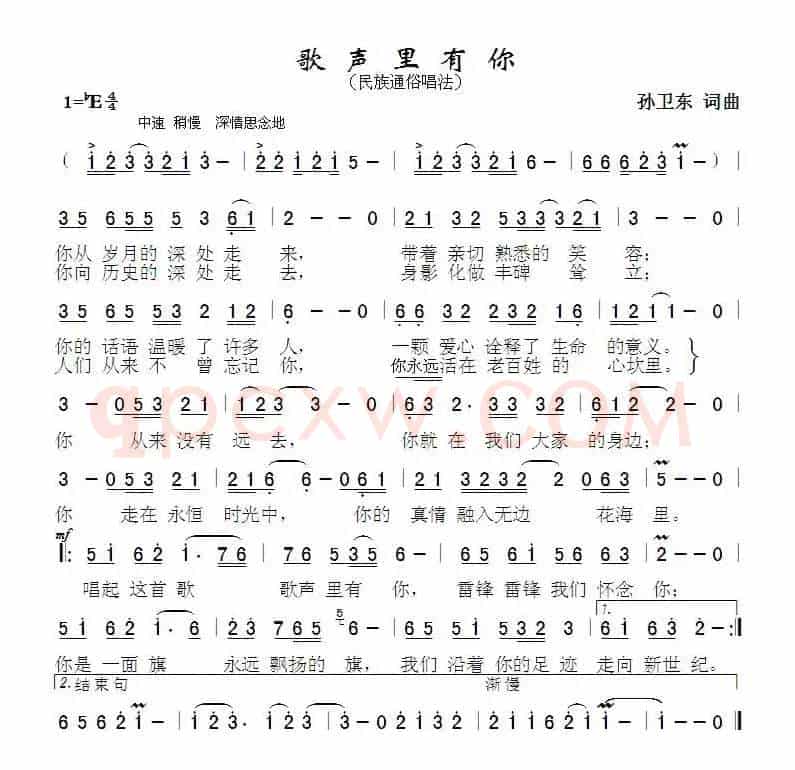 歌声里有你
（民族通俗唱法）
1=♭E 4/4
孙卫东 词曲
中速 稍慢 深情思念地
( i 2 3 3 2 1 3 - | 2 2 1 2 1 5 - | i 2 3 3 2 1 6 - | 6 6 6 2 3 i - )
3 5 6 5 5 5 3 6 1 | 2 - - 0 | 2 1 3 2 5 3 3 3 2 1 | 3 - - 0 |
你从 岁月的 深 处 走 来， 带着 亲切 熟悉的 笑 容；
你向 历史的 深 处 走 去， 身影 化做 丰碑 耸 立；
3 5 6 5 5 3 2 1 2 | 6 - - 0 | 6 6 3 2 2 3 2 1 6 | 1 2 1 1 - 0 |
你的 话语 温暖 了 许多 人， 一颗 爱心 诠释了 生命 的意义。
人们 从来 不 曾 忘记 你， 你永远活在 老百姓 的 心坎里。
3 - 0 5 3 2 1 | 1 2 3 3 - 0 | 6 3 2· 3 3 5 3 2 | 6 1 2 2 - 0 |
你 从来 没有 远 去， 你就 在 我们 大家 的身边；
3 - 0 5 3 2 1 | 2 1 6 6 - 0 6 1 | 2 1 3 2 3 2 3 2 2 0 6 3 | 5 - - 0 |
你 走在 永恒 时光中， 你的 真情 融入无边 花海 里。
mf
|: 5 1 6 2 1· 7 6 | 5 5 7 6 5 3 5 | 2 3 2 3 1 2 7 6 | 5 - - 0 |
唱起 这首 歌 歌声 里有 你， 雷锋 雷锋 我们 怀念 你；
5 1 6 2 1· 6 | 2 3 7 6 5 3· 0 | 6 5 6 2 3 2 3 5 3 | 6 1 6 3 2 - :|
1.
你是 一面 旗 永远 飘扬的 旗， 我们 沿着 你的足 迹 走向 新世 纪。
2. 结束句
渐慢
6 5 6 2 1 - | 1 2 3· 1 2 3 | 2 2 2 2 0 | 1 1 6 1 2 6 1 2 | 1 - 1 0 |
qpcxw.COM